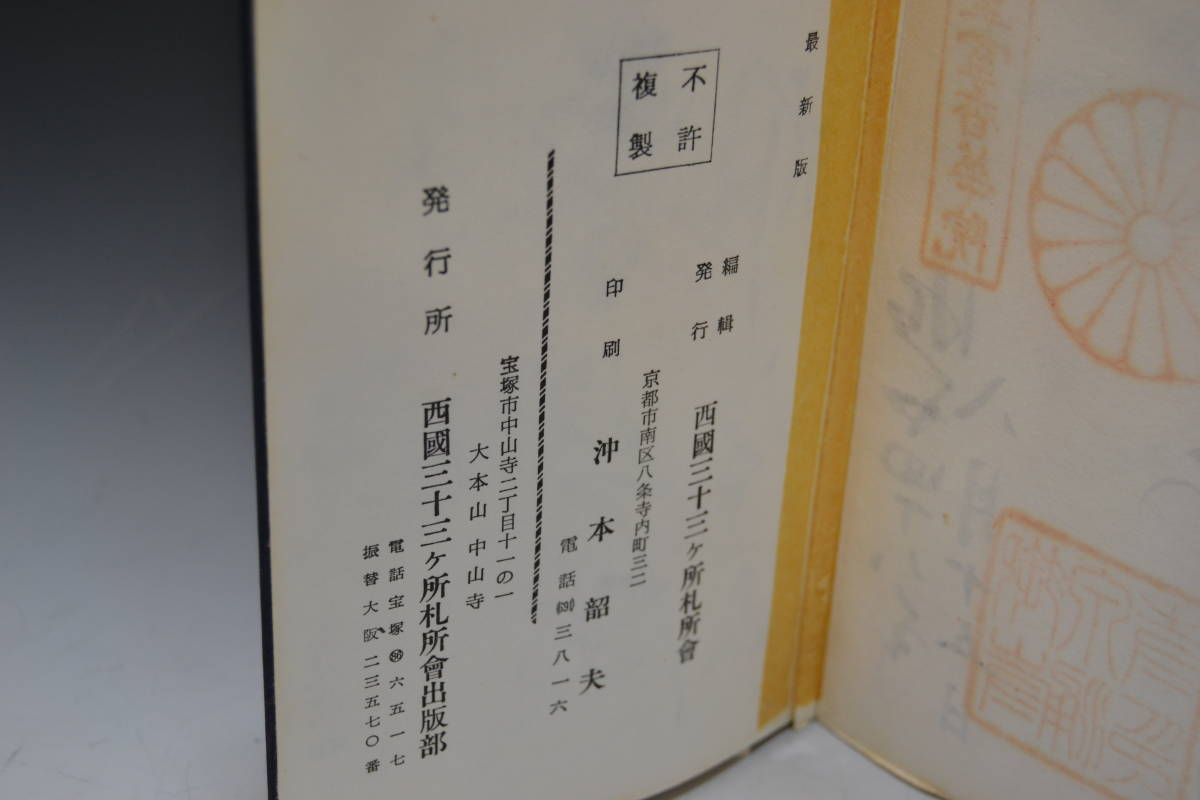 最新版
不許
複製
編輯
発行
西國三十三ヶ所札所會
京都市南区八条寺内町三二
印刷 沖本韶夫
電話(691)三八一六
宝塚市中山寺二丁目十一の一
大本山中山寺
発行所 西國三十三ヶ所札所會出版部
電話宝塚(86)六五一七
振替大阪二三五七〇番